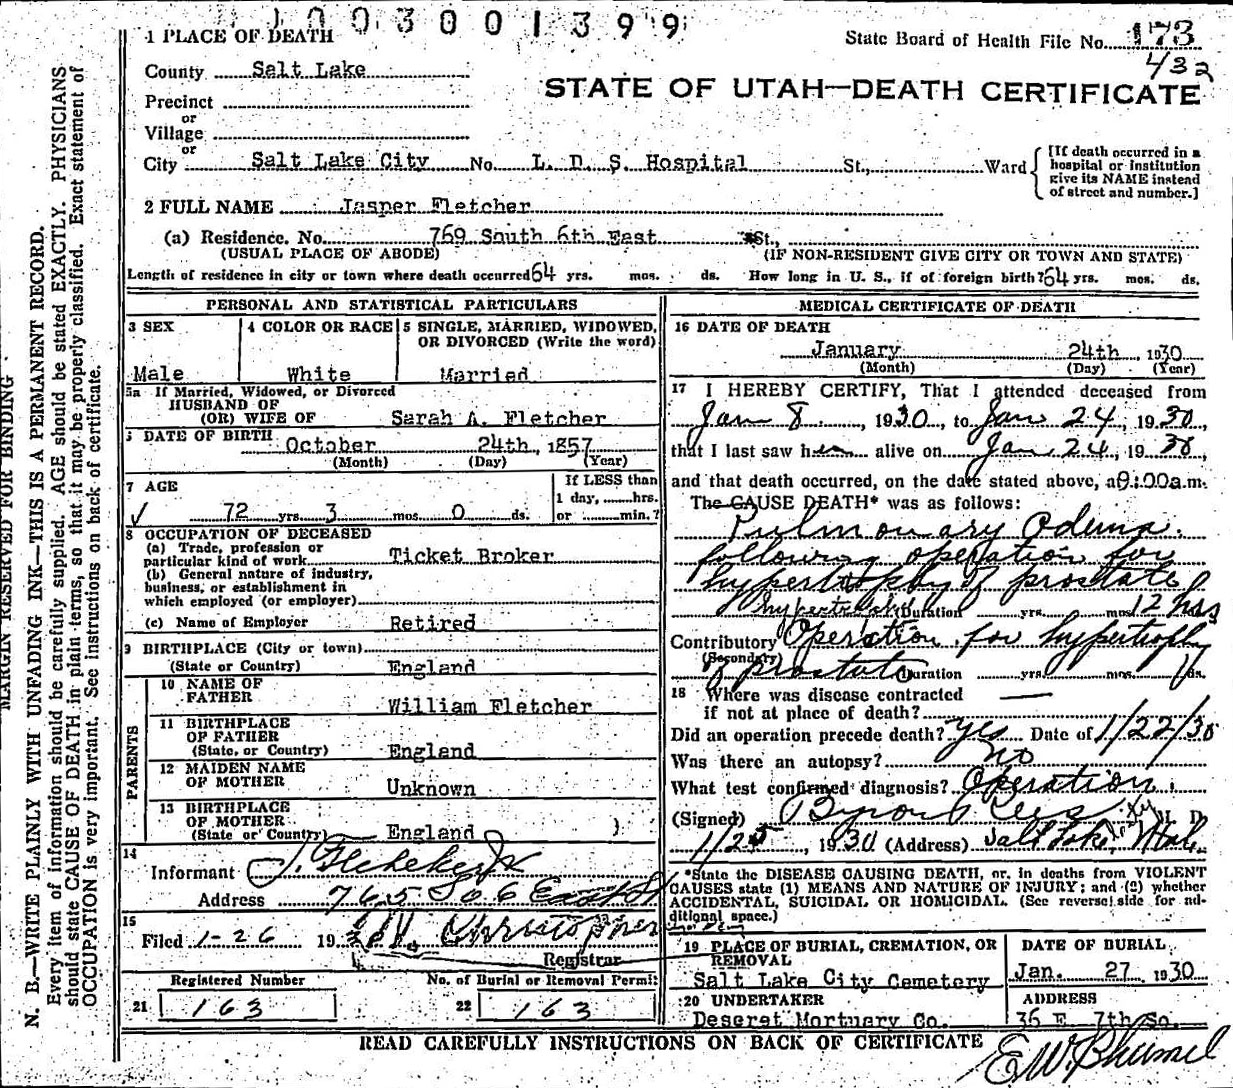 1003001399
1 PLACE OF DEATH
State Board of Health File No. 173
432
County Salt Lake
STATE OF UTAH—DEATH CERTIFICATE
Precinct
or
Village
or
City Salt Lake City No. L. D. S. Hospital St., Ward
[If death occurred in a
hospital or institution
give its NAME instead
of street and number.]
2 FULL NAME Jasper Fletcher
(a) Residence. No. 769 South 6th East St.,
(USUAL PLACE OF ABODE) (IF NON-RESIDENT GIVE CITY OR TOWN AND STATE)
Length of residence in city or town where death occurred 64 yrs. mos. ds. How long in U. S., if of foreign birth? 64 yrs. mos. ds.
PERSONAL AND STATISTICAL PARTICULARS
3 SEX
Male
4 COLOR OR RACE
White
5 SINGLE, MARRIED, WIDOWED,
OR DIVORCED (Write the word)
Married
5a If Married, Widowed, or Divorced
HUSBAND OF
(OR) WIFE OF Sarah A. Fletcher
6 DATE OF BIRTH October 24th, 1857
(Month) (Day) (Year)
7 AGE
72 yrs 3 mos 0 ds.
If LESS than
1 day, hrs.
or min.?
8 OCCUPATION OF DECEASED
(a) Trade, profession or
particular kind of work Ticket Broker
(b) General nature of industry,
business, or establishment in
which employed (or employer)
(c) Name of Employer Retired
9 BIRTHPLACE (City or town)
(State or Country) England
PARENTS
10 NAME OF
FATHER William Fletcher
11 BIRTHPLACE
OF FATHER
(State, or Country) England
12 MAIDEN NAME
OF MOTHER Unknown
13 BIRTHPLACE
OF MOTHER
(State or Country) England
14
Informant J. Fletcher Jr
Address 765 So 6 East St
15
Filed 1-26 19 Christopher
Registrar
Registered Number
21 163
No. of Burial or Removal Permit
22 163
MEDICAL CERTIFICATE OF DEATH
16 DATE OF DEATH
January 24th, 1930
(Month) (Day) (Year)
17 I HEREBY CERTIFY, That I attended deceased from
Jan 8, 1930, to Jan 24, 1930,
that I last saw h alive on Jan. 24, 1930,
and that death occurred, on the date stated above, at 9:00 a.m.
The CAUSE DEATH* was as follows:
Pulmonary Odema.
following operation for
hypertrophy of prostate
(Duration yrs. mos. 12 hrs
Contributory Operation for hypertrophy
(Secondary) of prostate (Duration yrs. mos. ds.
18 Where was disease contracted
if not at place of death? —
Did an operation precede death? Yes Date of 1/22/30
Was there an autopsy? No
What test confirmed diagnosis? Operation
(Signed) Byron Rees M. D.
1/25, 1930 (Address) Salt Lake City Utah.
*State the DISEASE CAUSING DEATH, or, in deaths from VIOLENT
CAUSES state (1) MEANS AND NATURE OF INJURY; and (2) whether
ACCIDENTAL, SUICIDAL OR HOMICIDAL. (See reverse side for ad-
ditional space.)
19 PLACE OF BURIAL, CREMATION, OR
REMOVAL
Salt Lake City Cemetery
DATE OF BURIAL
Jan. 27 1930
20 UNDERTAKER
Deseret Mortuary Co.
ADDRESS
36 E. 7th So.
READ CAREFULLY INSTRUCTIONS ON BACK OF CERTIFICATE
MARGIN RESERVED FOR BINDING
N. B.—WRITE PLAINLY WITH UNFADING INK—THIS IS A PERMANENT RECORD.
Every item of information should be carefully supplied. AGE should be stated EXACTLY. PHYSICIANS
should state CAUSE OF DEATH in plain terms, so that it may be properly classified. Exact statement of
OCCUPATION is very important. See instructions on back of certificate.